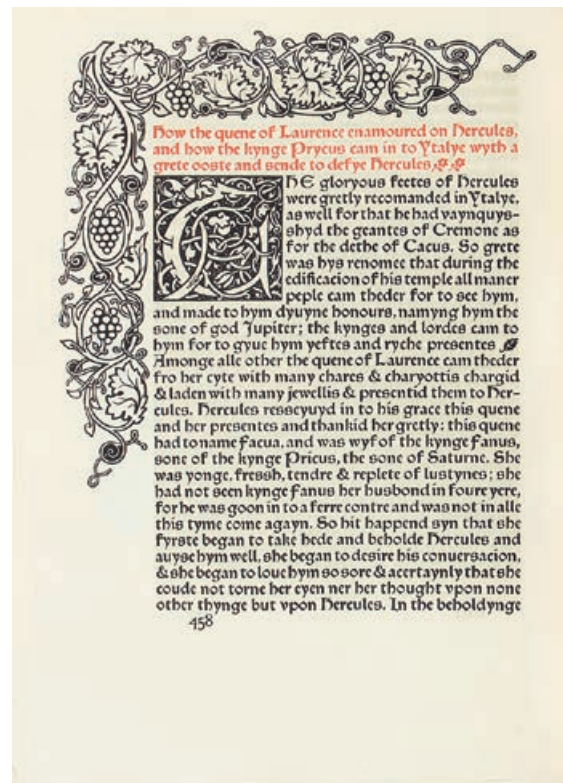 How the quene of Laurence enamoured on Hercules,
and how the kynge Prycus cam in to Ytalye wyth a
grete ooste and sende to defye Hercules
THE gloryous feetes of Hercules
were gretly recomanded in Ytalye,
as well for that he had vaynquys-
shyd the geantes of Cremone as
for the dethe of Cacus. So grete
was hys renomee that during the
edificacion of his temple all maner
peple cam theder for to see hym,
and made to hym dyuyne honours, namyng hym the
sone of god Jupiter; the kynges and lordes cam to
hym for to gyue hym yeftes and ryche presentes
Amonge alle other the quene of Laurence cam theder
fro her cyte with many chares & charyottis chargid
& laden with many jewellis & presentid them to Her-
cules. Hercules resseyuyd in to his grace this quene
and her presentes and thankid her gretly: this quene
had to name Facua, and was wyf of the kynge Fanus,
sone of the kynge Pricus, the sone of Saturne. She
was yonge, fressh, tendre & replete of lustynes; she
had not seen kynge Fanus her husbond in foure yere,
for he was goon in to a ferre contre and was not in alle
this tyme come agayn. So hit happend syn that she
fyrste began to take hede and beholde Hercules and
auyse hym well, she began to desire his conuersacion,
& she began to loue hym so sore & acertaynly that she
coude not torne her eyen ner her thought vpon none
other thynge but vpon Hercules. In the beholdynge
458